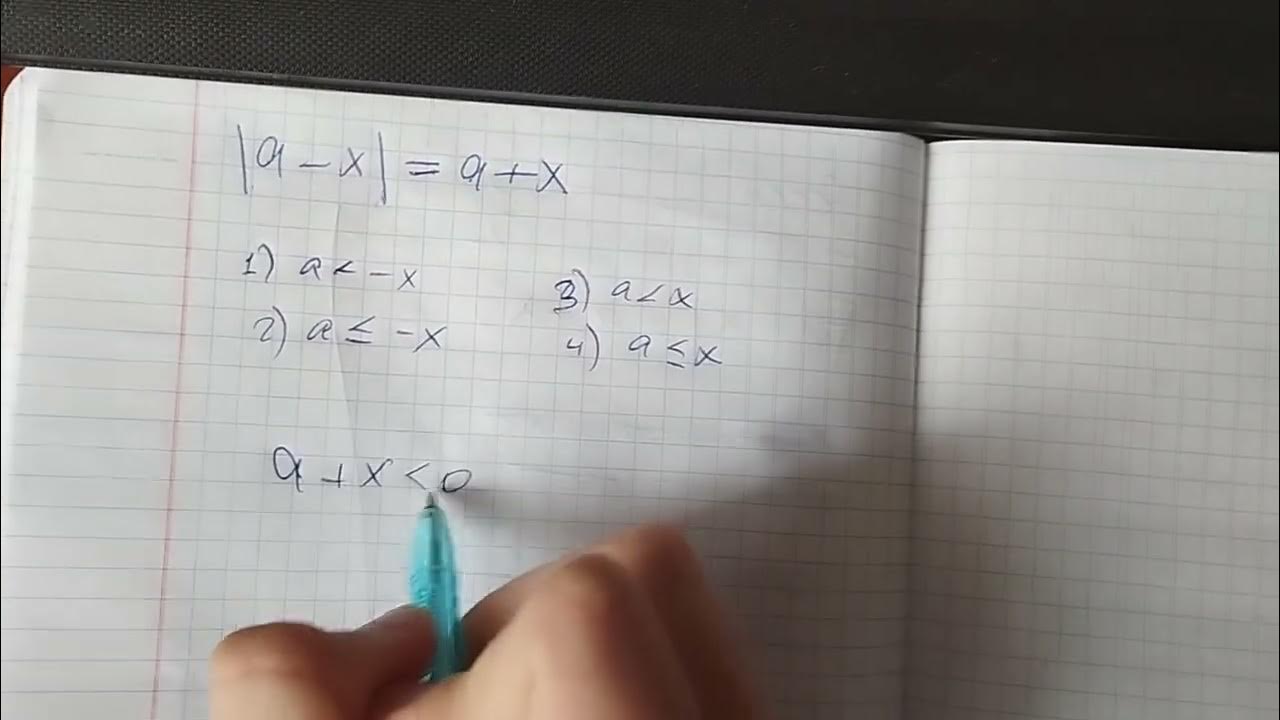 |a - x| = a + x
1) a < -x
2) a ≤ -x
3) a < x
4) a ≤ x
a + x < 0